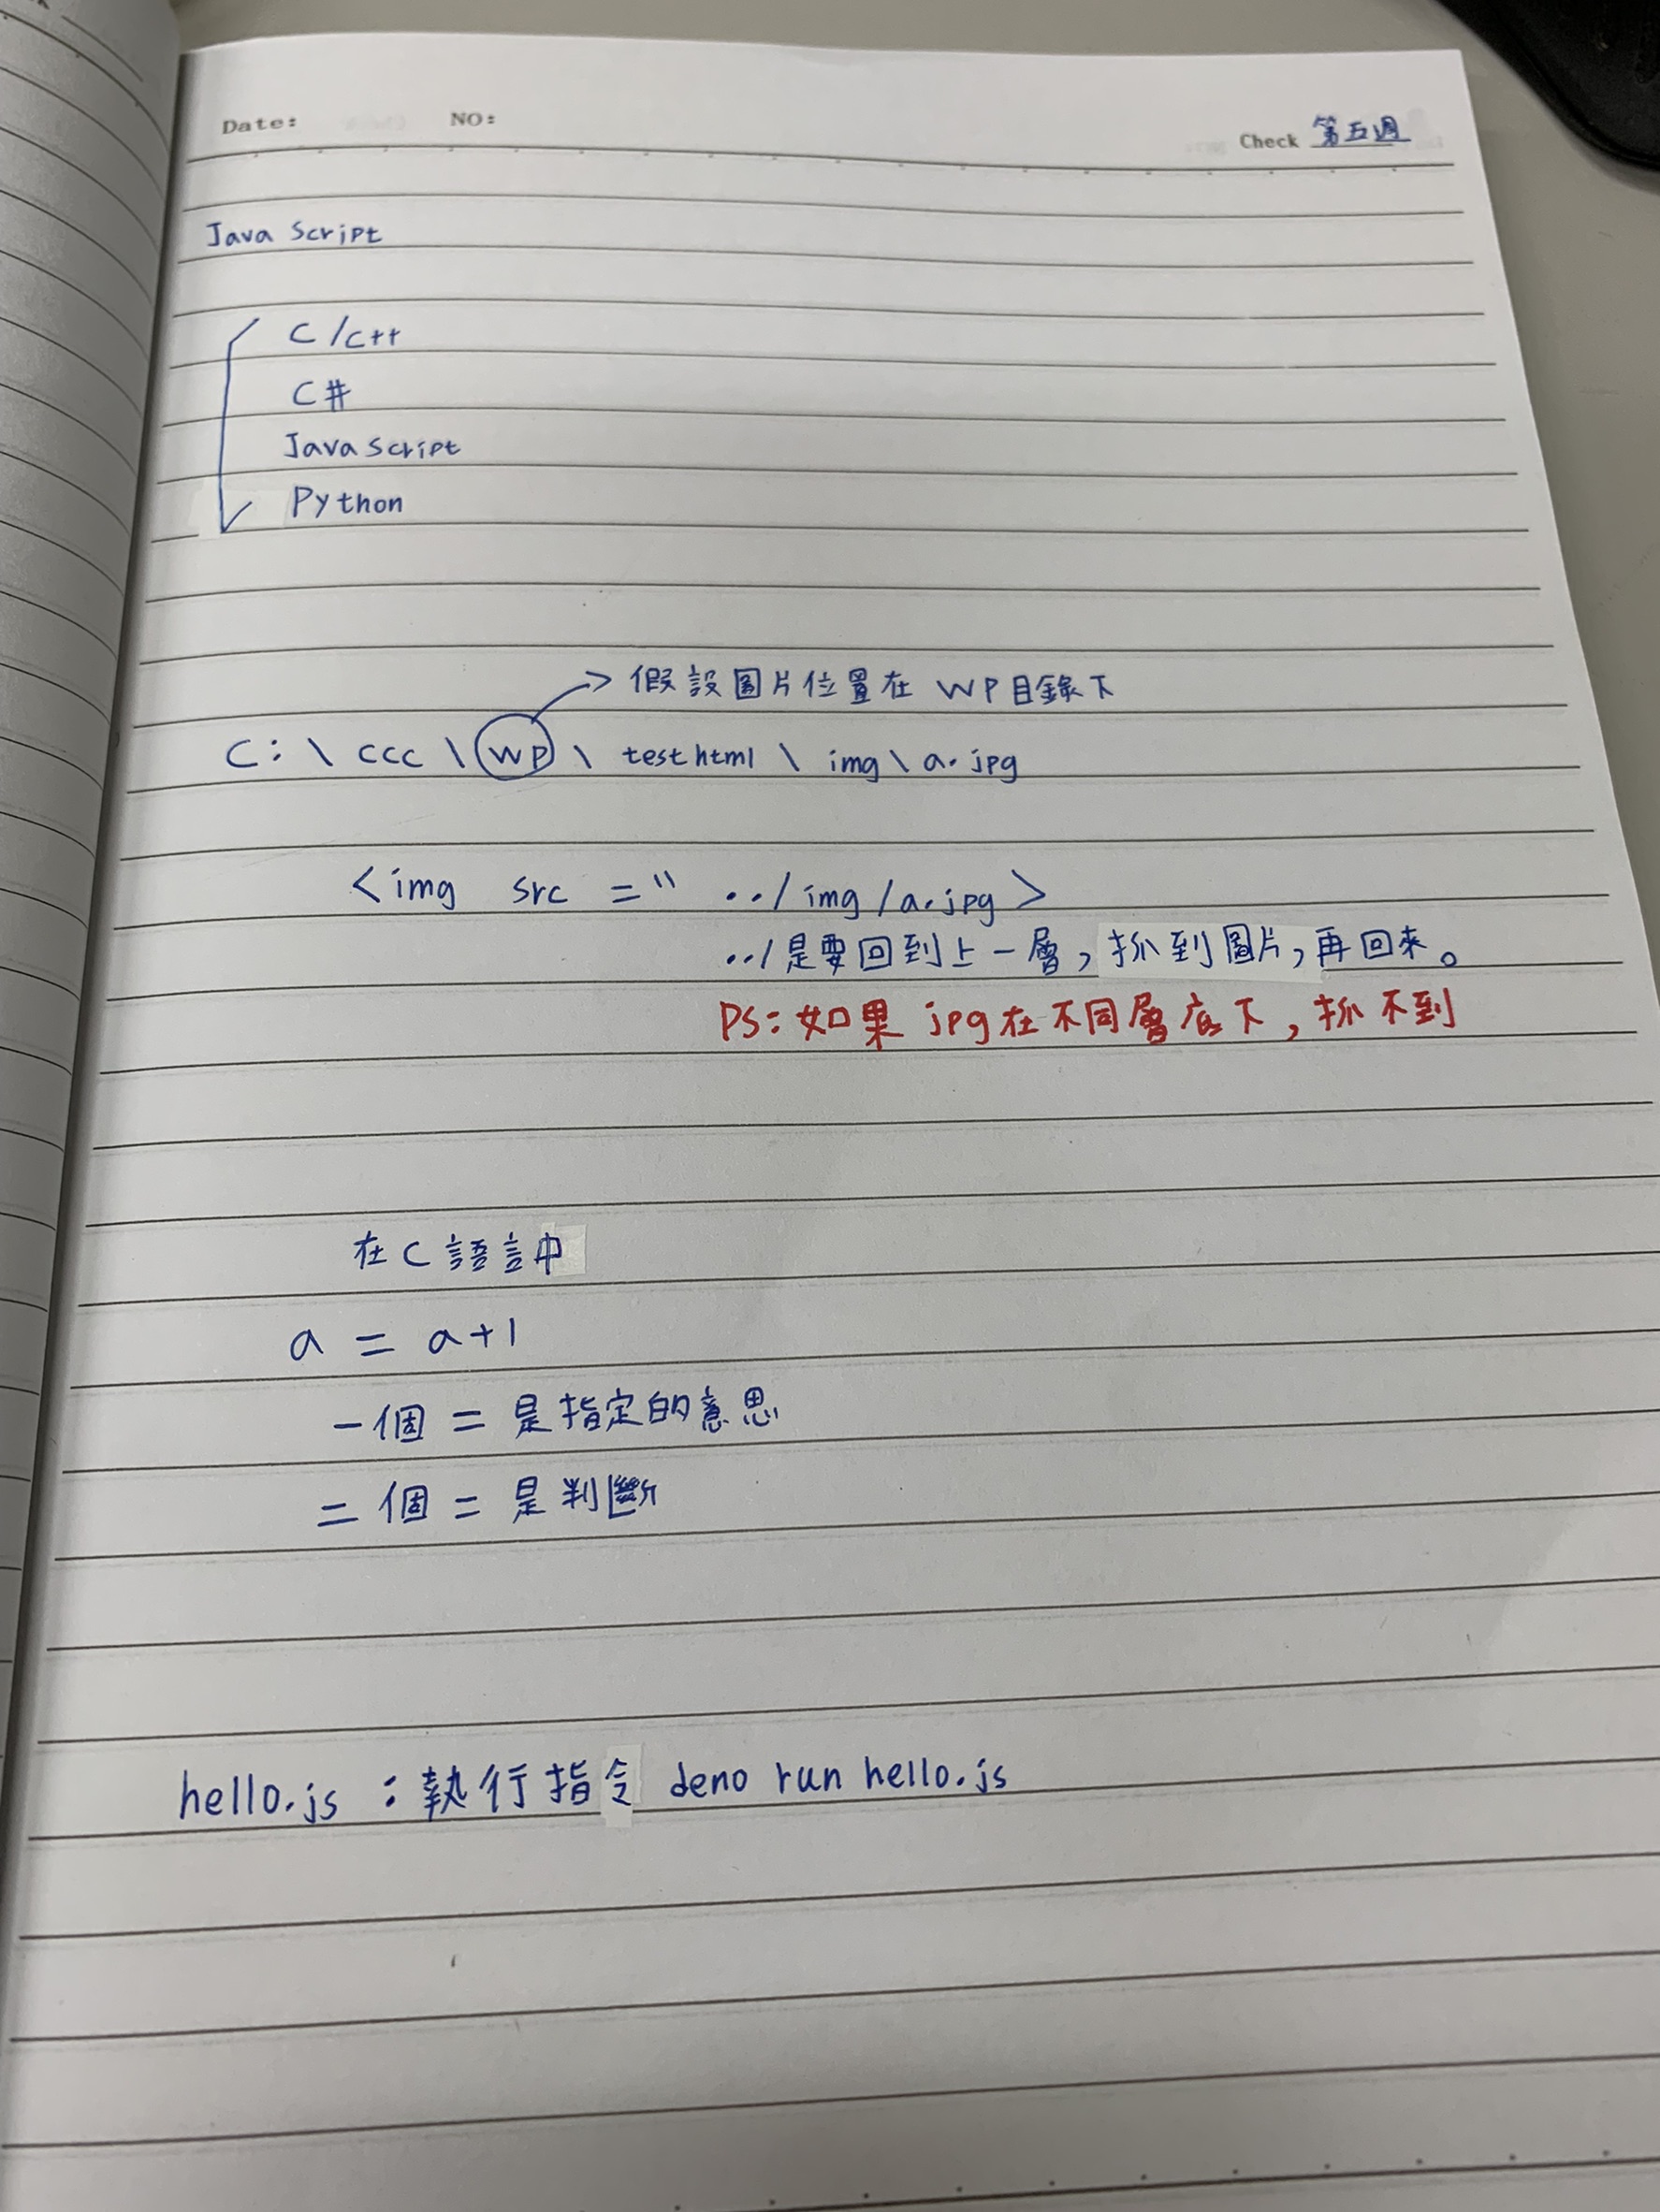 Date: NO: Check 第五週
Java Script
C/C++
C#
Java Script
Python
假設圖片位置在 WP目錄下
C:\ccc\WP\testhtml\img\a.jpg
<img src="../img/a.jpg>
../是要回到上一層,抓到圖片,再回來。
PS:如果 jpg在不同層底下,抓不到
在C語言中
a = a+1
一個 = 是指定的意思
二個 = 是判斷
hello.js :執行指令 deno run hello.js